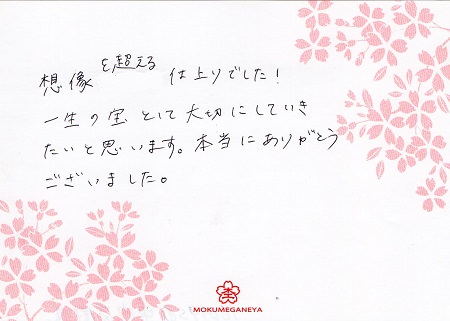 想像を超える仕上りでした！
一生の宝として大切にしていき
たいと思います。本当にありがとう
ございました。
MOKUMEGANEYA